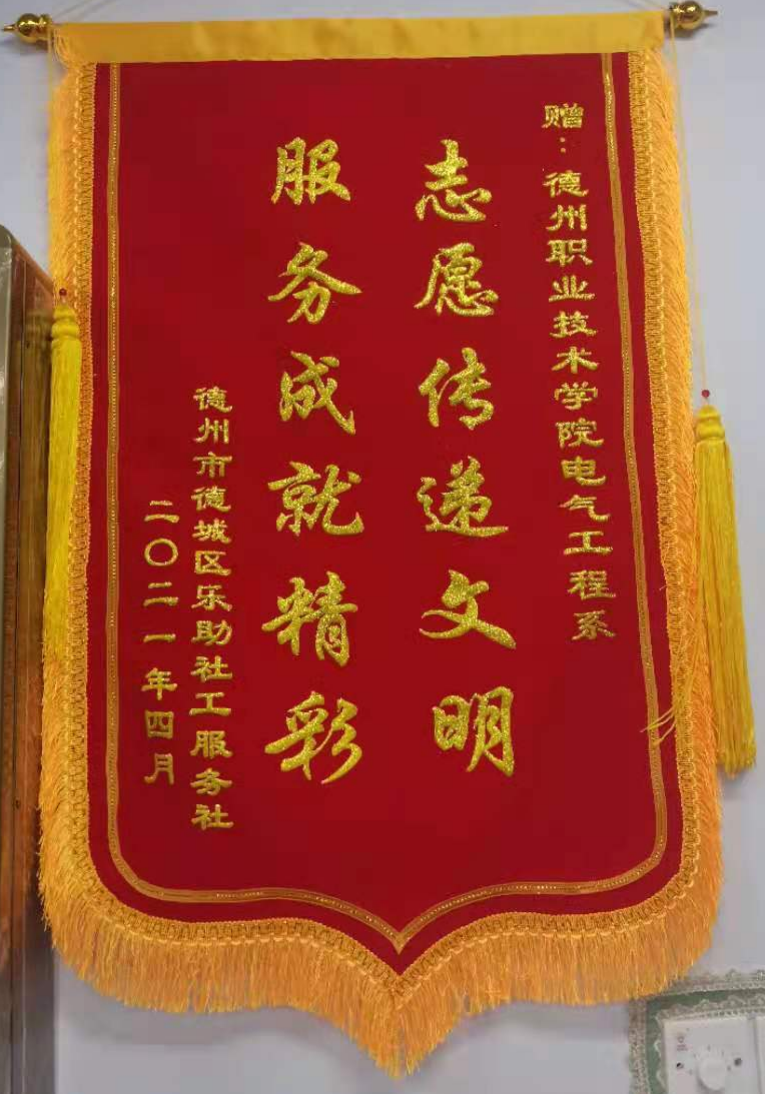 赠：德州职业技术学院电气工程系
志愿传递文明
服务成就精彩
德州市德城区乐助社工服务社
二〇二一年四月